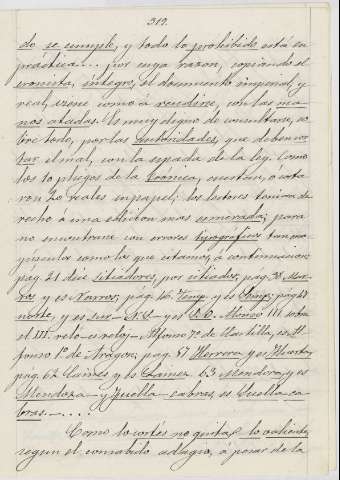 319.
do se cumple, y todo lo prohibido está en
práctica... por cuya razon, copiando el
cronista, íntegro, el documento imperial y
real, viene como á rendirse, con las ma-
nos atadas. Es muy digno de consultarse, so-
bre todo, por las autoridades, que deben cor-
tar el mal, con la espada de la ley. Como
los 10 pliegos de la Cronica, cuestan, ó costa-
ron 20 reales en papel; los lectores tenian de-
recho á una edicion mas esmerada; para
no encontrarse con errores tipográficos tan ma-
yúsculos como los que citamos, á continuacion:
pág. 21 dice sitiadores, por sitiados; pag. 38,
y es Narros; pág. 40, Temp. y es; pág. 47
norte, y es sur – N. S. – y es S. O. Alonso III sobre
el III. – reló – es reloj – Alfonso 7º de Castilla, es Al-
fonso 1º de Aragon; pag. 57 Herrera y es Huerta,
pag. 62 Caines y es Lainez. 63 Mendiva, y es
Mendoza – y Juella – cabras, es Suella-ca-
bras. – ....
Como lo cortés no quita á lo valiente,
segun el consabido adagio, á pesar de la